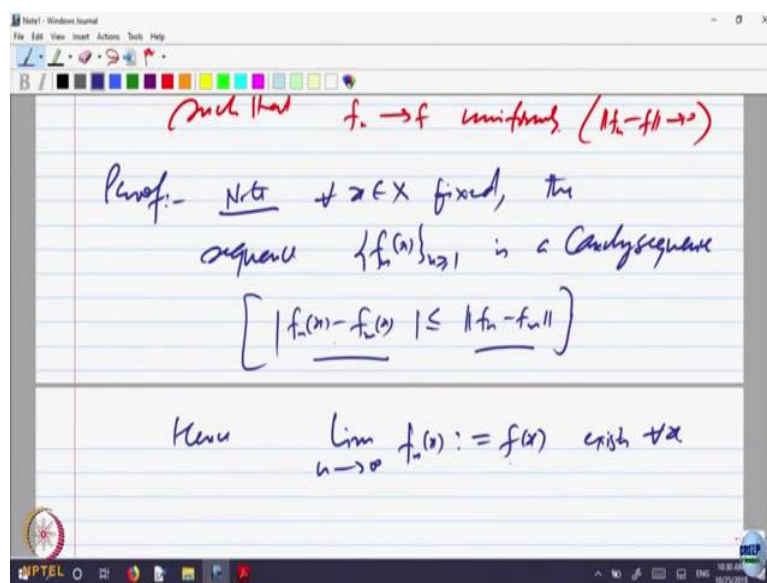 Note1 - Windows Journal
File Edit View Insert Actions Tools Help
B I
such that fₙ → f uniformly (‖fₙ - f‖ → 0)
Proof:- Note ∀ x ∈ X fixed, the
sequence {fₙ(x)}ₙ≥₁ is a Cauchy sequence
[ |fₙ(x) - fₘ(x)| ≤ ‖fₙ - fₘ‖ ]
Hence lim n→∞ fₙ(x) := f(x) exists ∀x
NPTEL
CDEEP
ENG
10:30 AM
10/25/2019